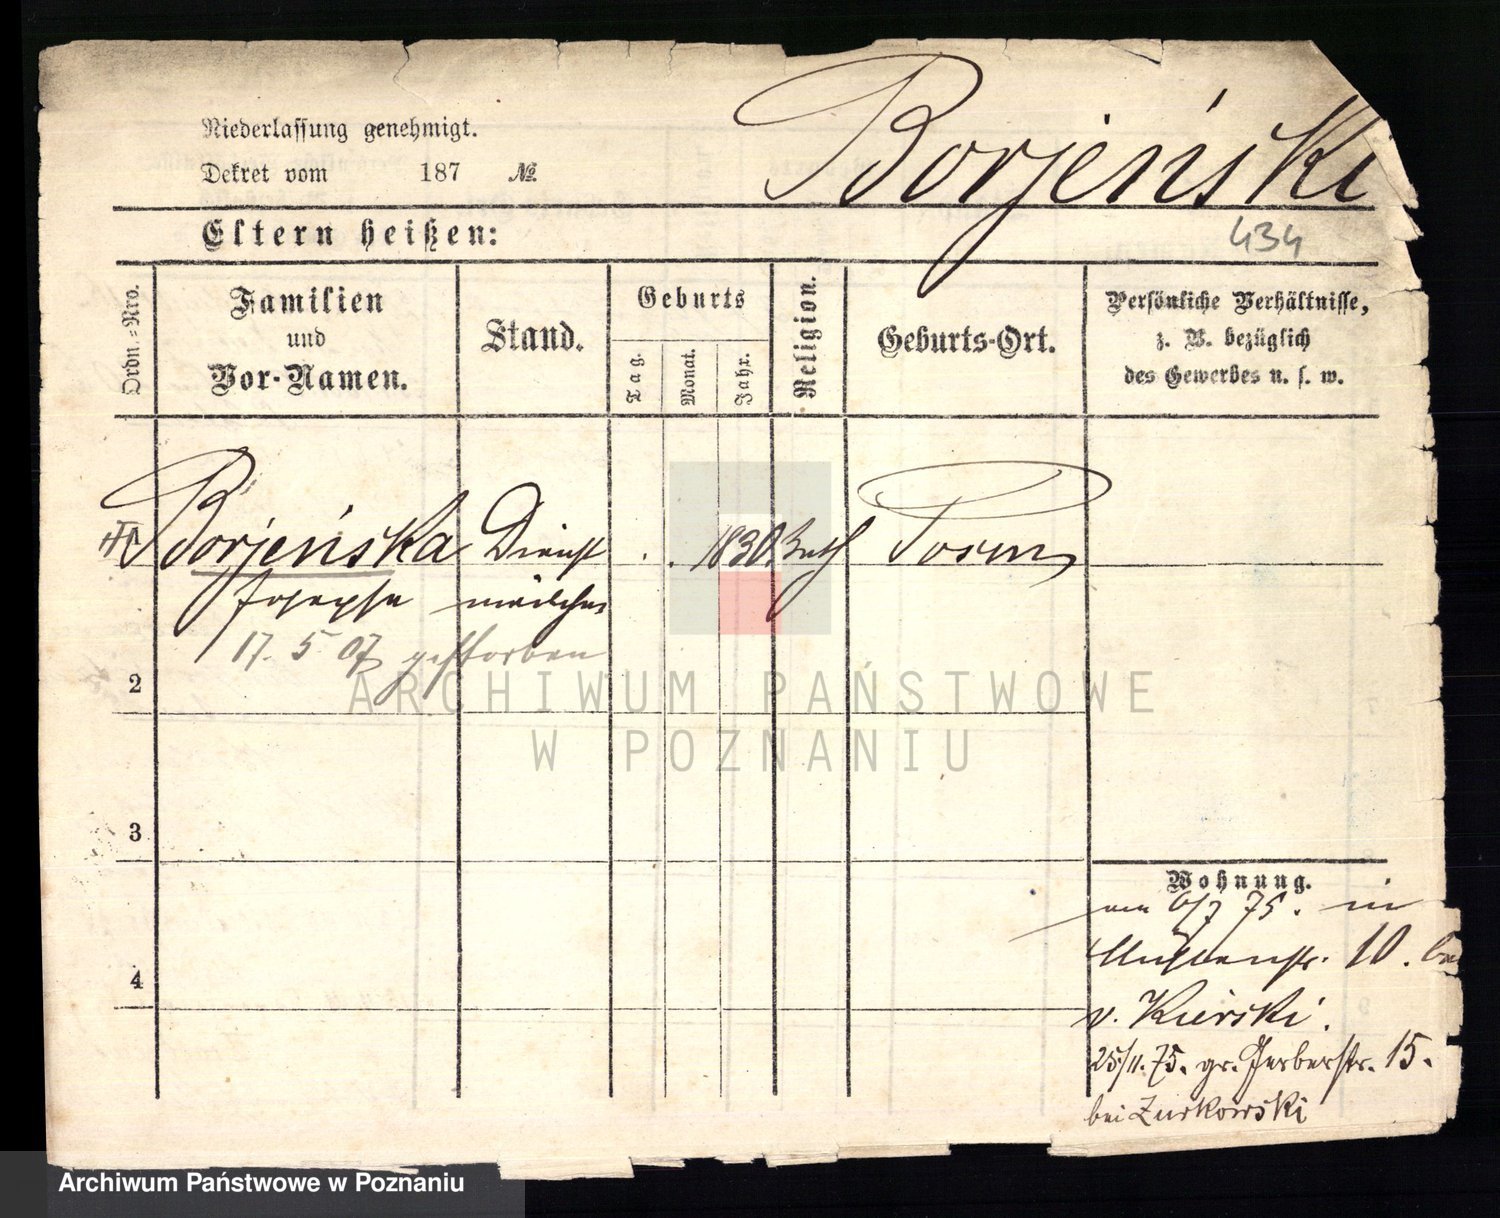 Borjeński
Niederlassung genehmigt.
Dekret vom 187 №
Eltern heißen:
434
Ordn.-Nro.
Familien
und
Vor-Namen.
Stand.
Geburts
Tag.
Monat.
Jahr.
Religion.
Geburts-Ort.
Persönliche Verhältnisse,
z. B. bezüglich
des Gewerbes u. s. w.
Borjeńska Dienst . . 1830 kath Posen
Josepha mädchen
17. 5 07 gestorben
2
3
4
Wohnung.
75. in
Mühlenstr. 10. bei
v. Kierski.
25/11. 75. gr. Gerberstr. 15.
bei Zurkowski
ARCHIWUM PAŃSTWOWE
W POZNANIU
Archiwum Państwowe w Poznaniu